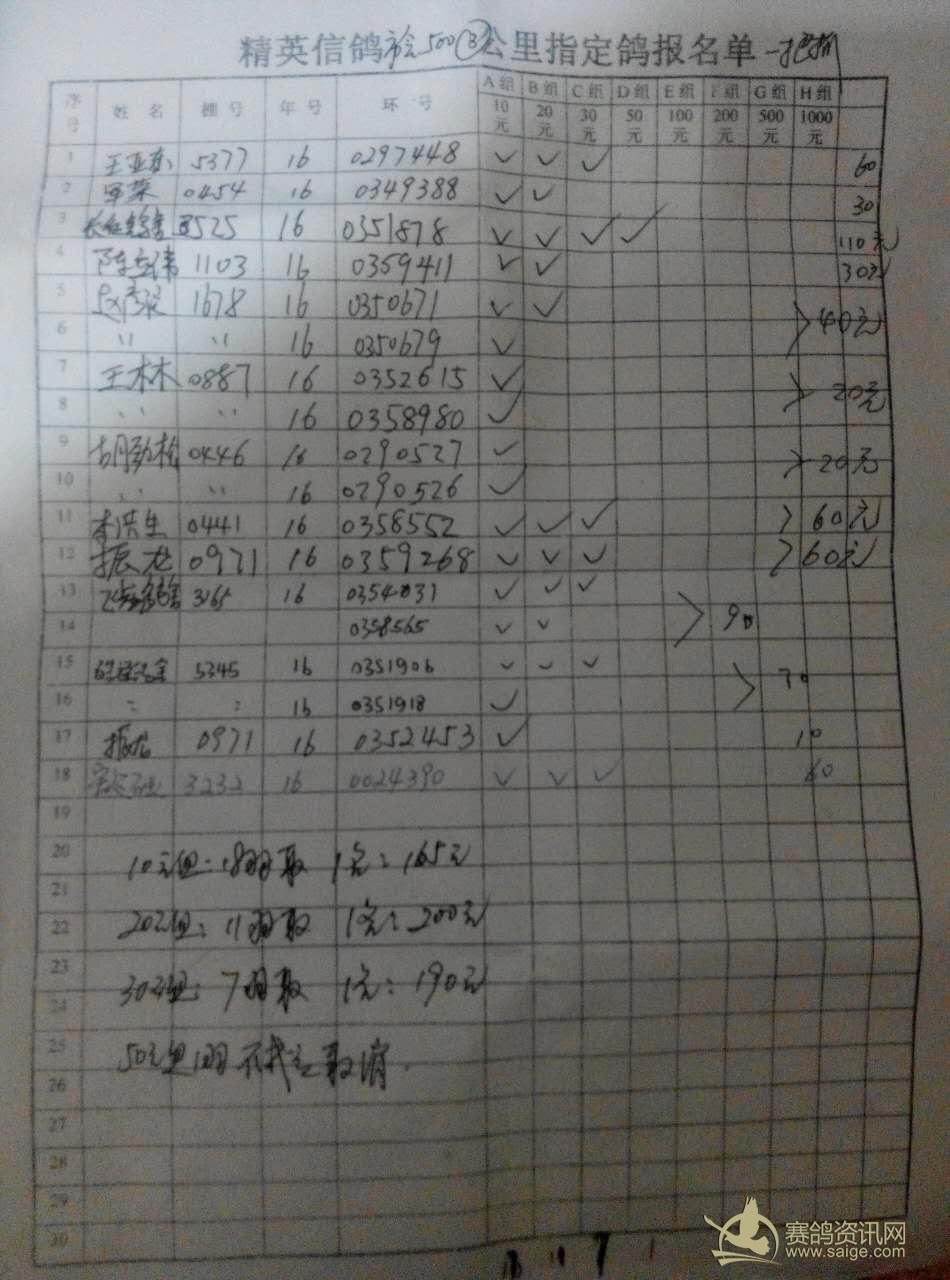 精英信鸽市会500③公里指定鸽报名单
序号 姓名 棚号 年号 环号 A组 B组 C组 D组 E组 F组 G组 H组
10元 20元 30元 50元 100元 200元 500元 1000元
1 5377 16 0297448 ✓ ✓ ✓ 60
2 0454 16 0349388 ✓ ✓ 30
3 8525 16 0351878 ✓ ✓ ✓ ✓ 110元
4 1103 16 0359411 ✓ ✓ 30元
5 1678 16 0350671 ✓ ✓ >40元
6 〃 〃 16 0350679 ✓
7 王木木 0887 16 0352615 ✓ >20元
8 〃 〃 16 0358980 ✓
9 胡劲松 0446 16 0290527 ✓ >20元
10 〃 〃 16 0290526 ✓
11 李洪生 0441 16 0358552 ✓ ✓ ✓ >60元
12 振龙 0971 16 0359268 ✓ ✓ ✓ >60元
13 3165 16 0354031 ✓ ✓ ✓ >90
14 0358565 ✓ ✓
15 5345 16 0351906 ✓ ✓ ✓ >70
16 〃 〃 16 0351918 ✓
17 振龙 0971 16 0352453 ✓ 10
18 3232 16 0024390 ✓ ✓ ✓ 60
19
20 10元组:18羽取1名:165元
21
22 20元组:11羽取1名:200元
23 30元组:7羽取1名:190元
24
25 50元组1羽不成立取消.
26
27
28
29
30
18 11 7 1
赛鸽资讯网
www.saige.com